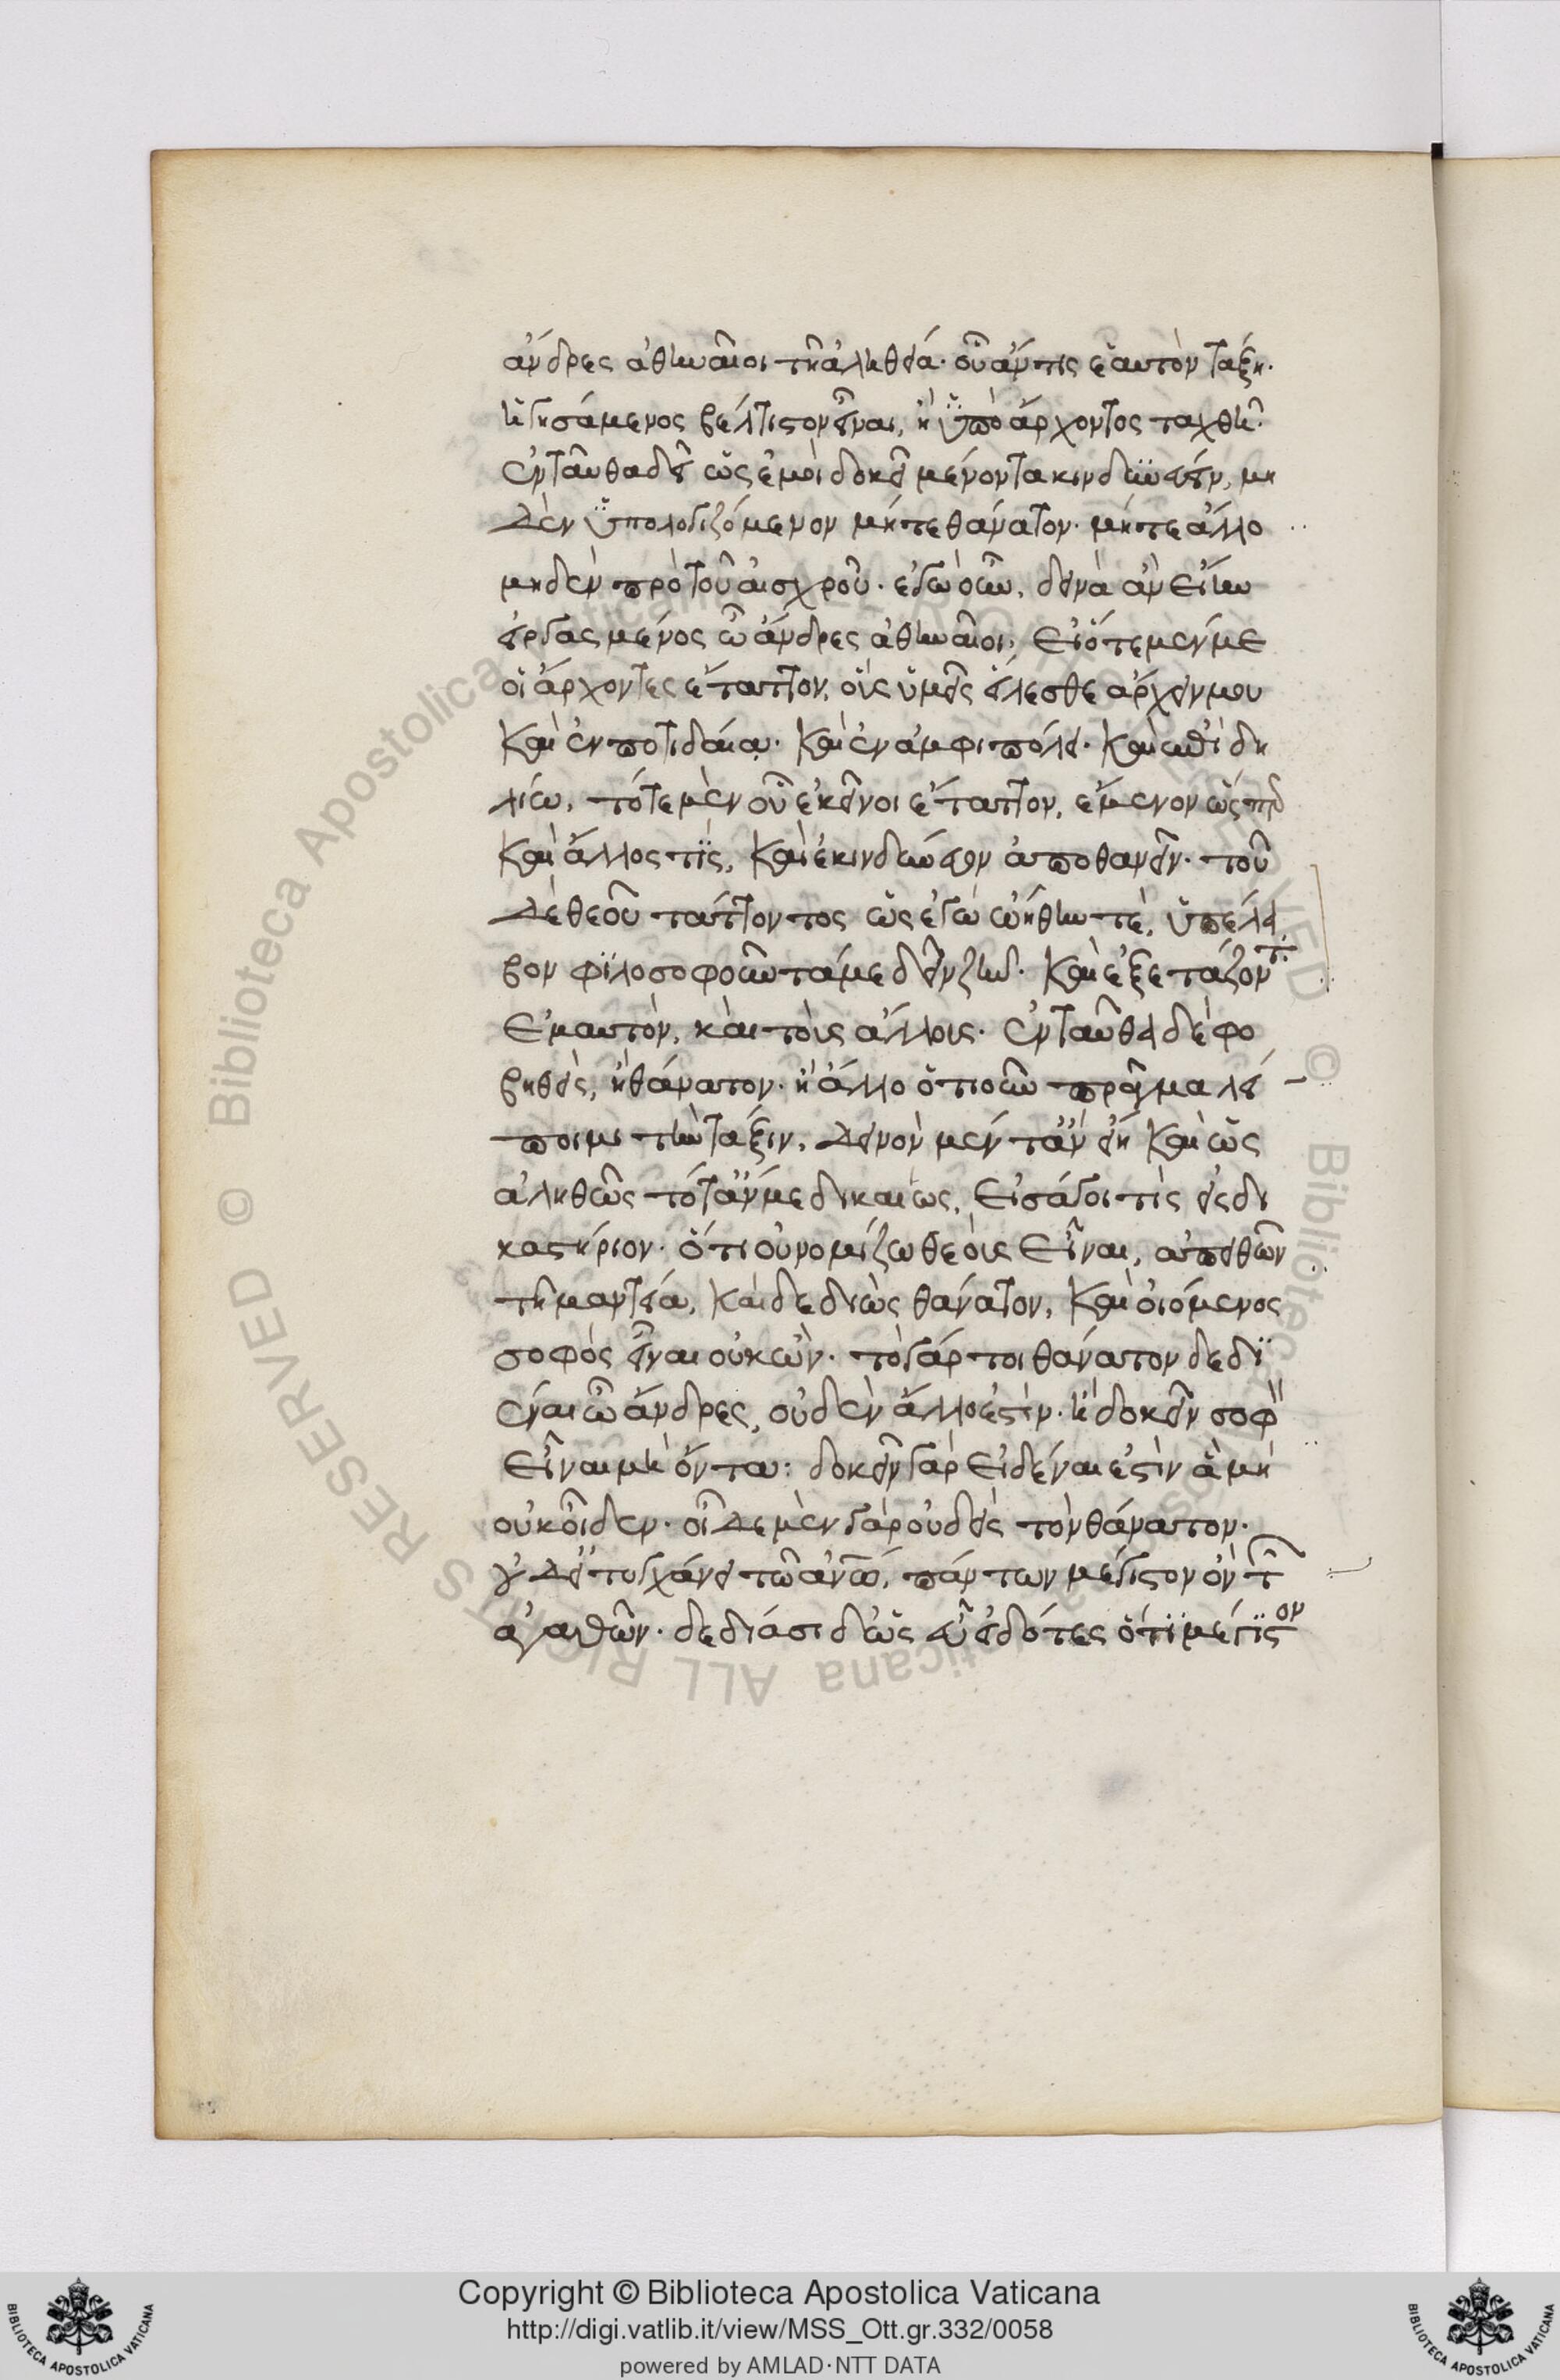 ἄνδρες ἀθηναῖοι τῆ ἀληθεία· οὗ ἄν τις ἑαυτὸν τάξη·
ἡγησάμενος βέλτιστον εἶναι, ἢ ὑπὸ ἄρχοντος ταχθῆ·
ἐνταῦθα δεῖ ὡς ἐμοὶ δοκεῖ μένοντα κινδυνεύειν, μη
δὲν ὑπολογιζόμενον μήτε θάνατον· μήτε ἄλλο
μηδὲν πρὸ τοῦ αἰσχροῦ· ἐγὼ οὖν, δεινὰ ἂν εἴην
εἰργασμένος ὦ ἄνδρες ἀθηναῖοι, εἰ ὅτε μέν με
οἱ ἄρχοντες ἔταττον, οὓς ὑμεῖς εἵλεσθε ἄρχειν μου
καὶ ἐν ποτιδαία· καὶ ἐν ἀμφιπόλει· καὶ ἐπὶ δη
λίω, τότε μὲν οὗ ἐκεῖνοι ἔταττον, ἔμενον ὥσπερ
καὶ ἄλλος τίς, καὶ ἐκινδύνευον ἀποθανεῖν· τοῦ
δὲ θεοῦ τάττοντος ὡς ἐγὼ ὠήθην τὲ, ὑπέλα
βον φιλοσοφοῦντά με δεῖν ζῆν· καὶ ἐξετάζοντ
ἐμαυτὸν, καὶ τοὺς ἄλλους· ἐνταῦθα δὲ φο
βηθεὶς, ἢ θάνατον· ἢ ἄλλο ὁτιοῦν πρᾶγμα λεί
ποιμι τὴν τάξιν, δεινὸν μέν τἂν εἴη καὶ ὡς
ἀληθῶς τότ' ἄν με δικαίως, εἰσάγοι τὶς εἰς δι
καστήριον· ὅτι οὐ νομίζω θεοὺς εἶναι, ἀπειθῶν
τῆ μαντεία, καὶ δεδιὼς θάνατον, καὶ οἰόμενος
σοφὸς εἶναι οὐκ ὤν· τὸ γάρ τοι θάνατον δεδι
έναι ὦ ἄνδρες, οὐδὲν ἄλλο ἐστὶν· ἢ δοκεῖν σοφὸ
εἶναι μὴ ὄντα: δοκεῖν γὰρ εἰδέναι ἐστὶν ἃ μὴ
οὐκ οἶδεν· οἶδε μὲν γὰρ οὐδεὶς τὸν θάνατον·
οὐδ' εἰ τυγχάνει τῶ ἀνω, πάντων μέγιστον ὂν τ
ἀγαθῶν· δεδίασι δ' ὡς εὖ εἰδότες ὅτι μέγιστον
Copyright © Biblioteca Apostolica Vaticana
http://digi.vatlib.it/view/MSS_Ott.gr.332/0058
powered by AMLAD·NTT DATA